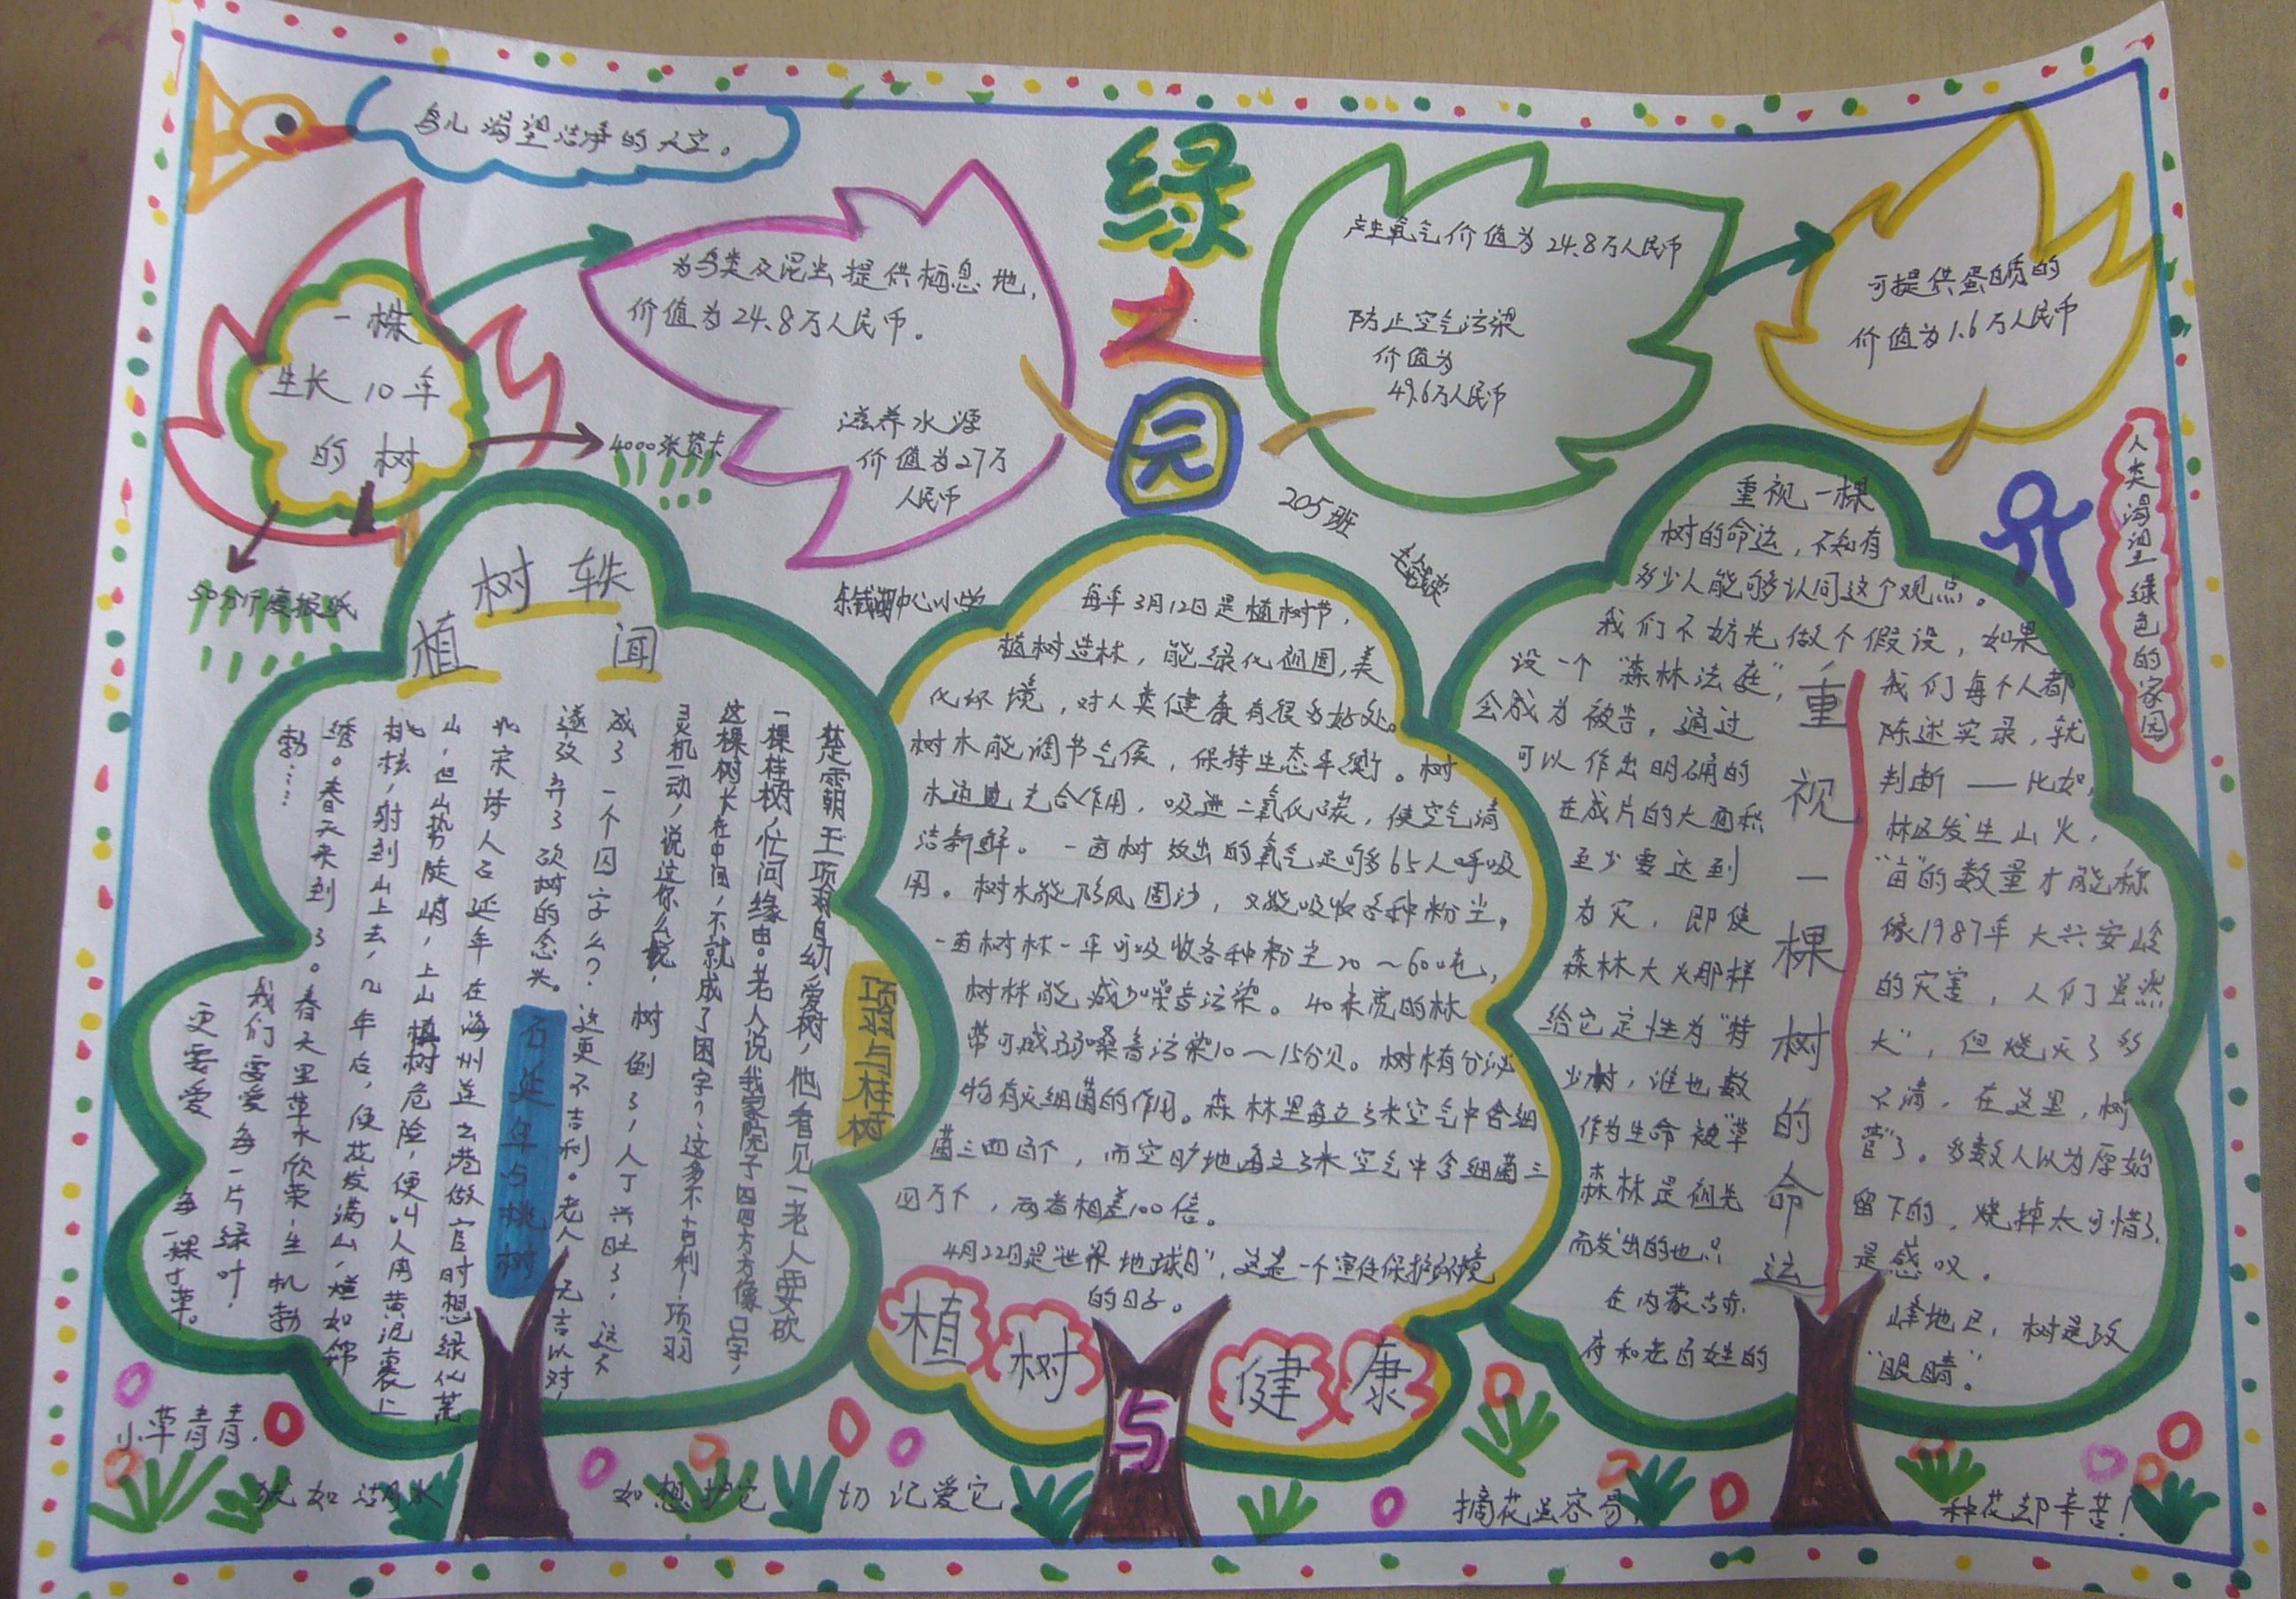 鸟儿渴望洁净的天空。
绿
之
园
一株
生长10年
的树
4000张贺卡
50公斤废报纸
为鸟类及昆虫提供栖息地,
价值为24.8万人民币。
滋养水源
价值为27万
人民币
产生氧气价值为24.8万人民币
防止空气污染
价值为
49.6万人民币
可提供蛋白质的
价值为1.6万人民币
人类渴望绿色的家园
205班
东钱湖中心小学
植树轶闻
项羽与桂树
楚霸王项羽自幼爱树,他看见一老人要砍
一棵桂树,忙问缘由。老人说我家院子四四方方像口字,
这棵树长在中间,不就成了困字?这多不吉利!项羽
灵机一动,说这你么说,树倒了,人丁兴旺了,这不
成了一个囚字么?这更不吉利。老人无言以对,
遂放弃了砍树的念头。
石延年与桃树
北宋诗人石延年在海州连云港做官时想绿化荒
山,但山势陡峭,上山植树危险,便叫人用黄泥裹上
桃核,射到山上去,几年后,便花发满山,烂如锦
绣。春天来到了。春天里草木欣荣,生机勃
勃……
我们要爱每一片绿叶,
更要爱每一棵小草。
每年3月12日是植树节,
植树造林,能绿化祖国,美
化环境,对人类健康有很多好处。
树木能调节气侯,保持生态平衡。树
木通过光合作用,吸进二氧化碳,使空气清
洁新鲜。一亩树放出的氧气足够65人呼吸
用。树木能防风固沙,又能吸收各种粉尘,
一亩树林一年可吸收各种粉尘20~60吨,
树林能减少噪音污染。40米宽的林
带可减弱噪音污染10~15分贝。树木有分泌
物有灭细菌的作用。森林里每立方米空气中含细
菌三四百个,而空旷地每立方米空气中含细菌三
四万个,两者相差100倍。
4月22日是"世界地球日",这是一个宣传保护环境
的日子。
植树与健康
重视一棵树的命运
重视一棵
树的命运,不知有
多少人能够认同这个观点。
我们不妨先做个假设,如果
设一个"森林法庭",我们每个人都
会成为被告,通过陈述实录,就
可以作出明确的判断——比如,
在成片的大面积林区发生山火,
至少要达到"亩"的数量才能称
为灾,即使像1987年大兴安岭
森林大火那样的灾害,人们虽然
给它定性为"特大",但烧灭了多
少树,谁也数不清。在这里,树
作为生命被"草菅"了。多数人以为原始
森林是祖先留下的,烧掉太可惜了,
而发出的也只是感叹。
在内蒙古赤峰地区,树是政
府和老百姓的"眼睛"。
小草青青,
犹如湖水
如想护它,切记爱它
摘花虽容易,
种花却辛苦!